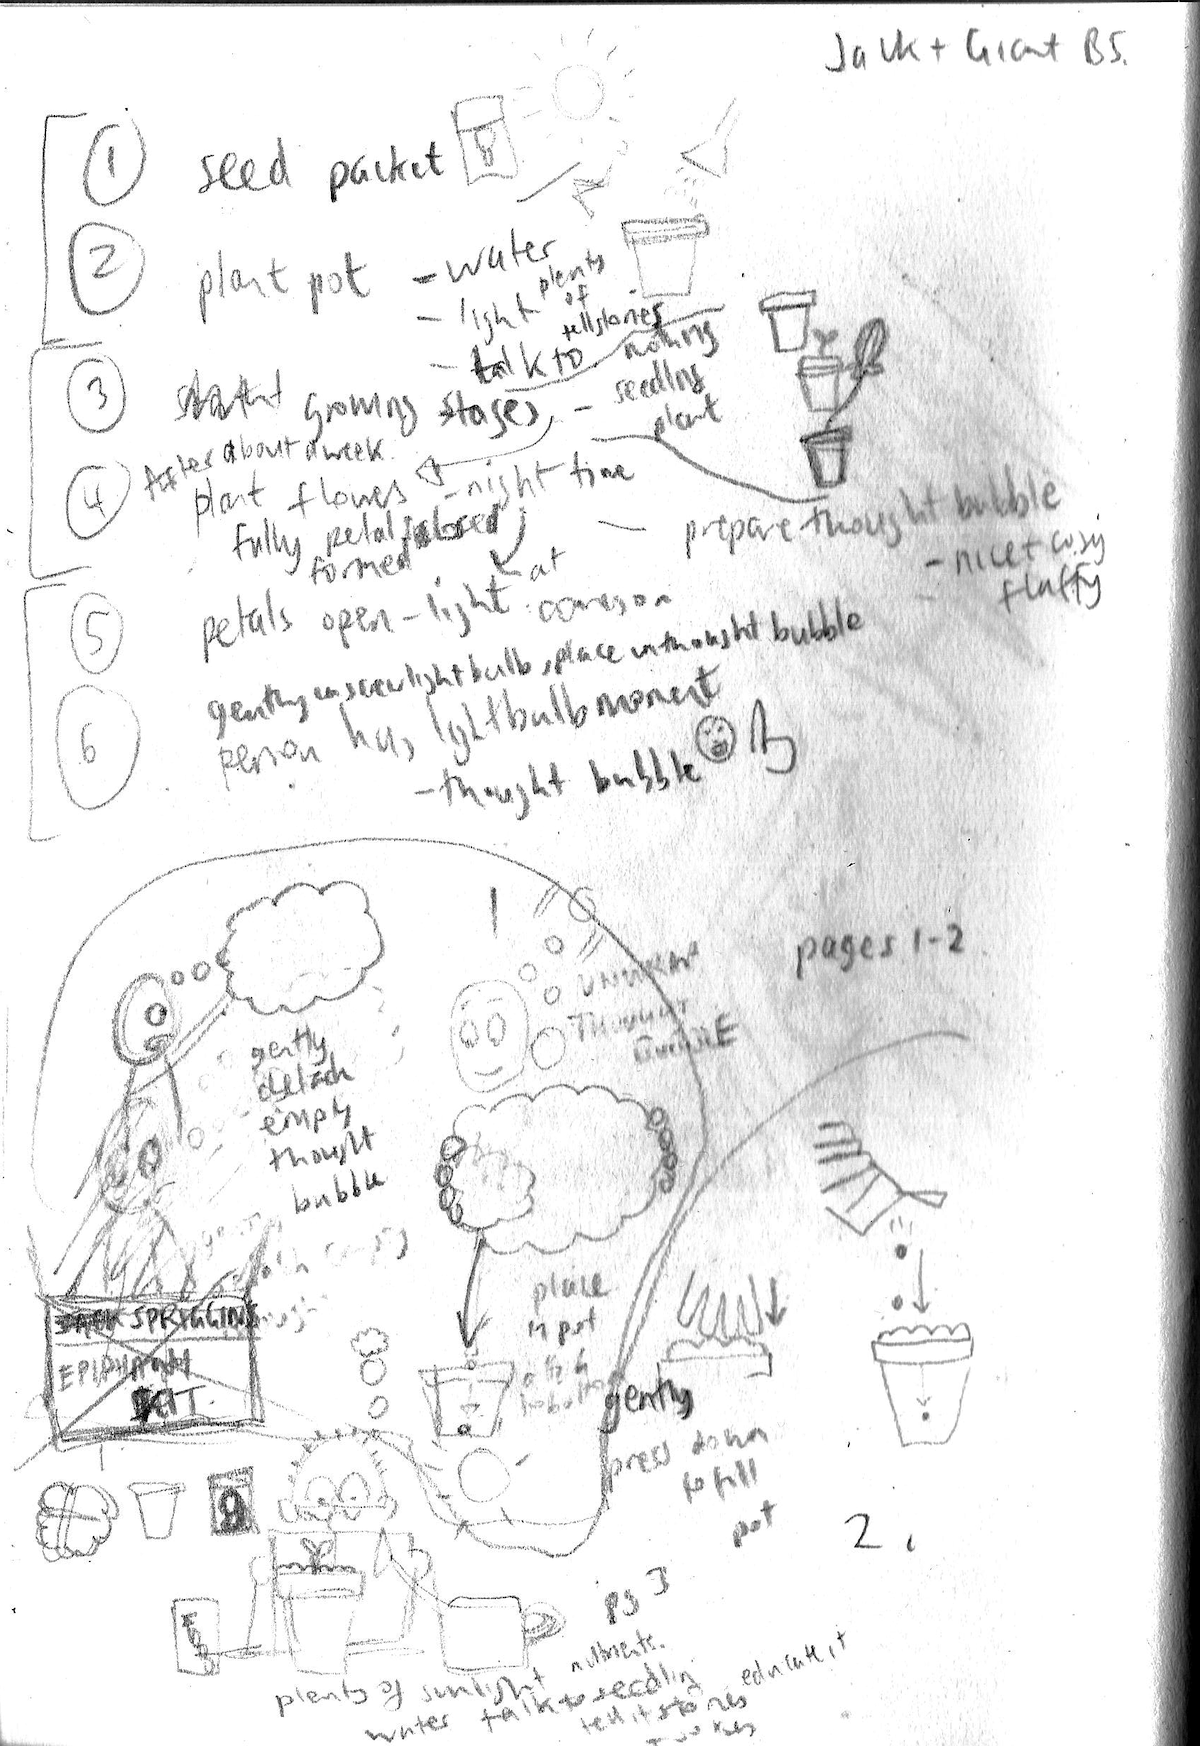 Jack + Giant BS.
1 seed packet
2 plant pot - water
- light plenty of
- talk to tell stories
3 start growing stages - nothing
seedling
plant
4 After about a week.
plant flowers - night time
fully petals closed
formed
- prepare thought bubble
- nice + cosy
- fluffy
5 petals open - light at
comes on
gently unscrew light bulb, place in thought bubble
6 person has lightbulb moment
- thought bubble
1
pages 1-2
THOUGHT
BUBBLE
gently
detach
empty
thought
bubble
place
in pot
SPRIGGINS
EPIPHANY
KIT.
gently
press down
to fill
pot
2.
pg 3
plenty of sunlight nutrients.
water talk to seedling educate it
tell it stories
jokes